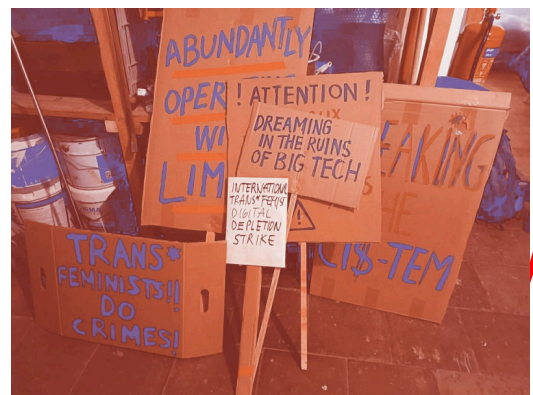 ABUNDANTLY
OPER
WI
LIM
! ATTENTION !
DREAMING
IN THE RUINS
OF BIG TECH
INTERNATIONAL
TRANS*FEMINIST
DIGITAL
DEPLETION
STRIKE
EAKING
HE
CI$-TEM
TRANS*
FEMINISTS!!
DO
CRIMES!